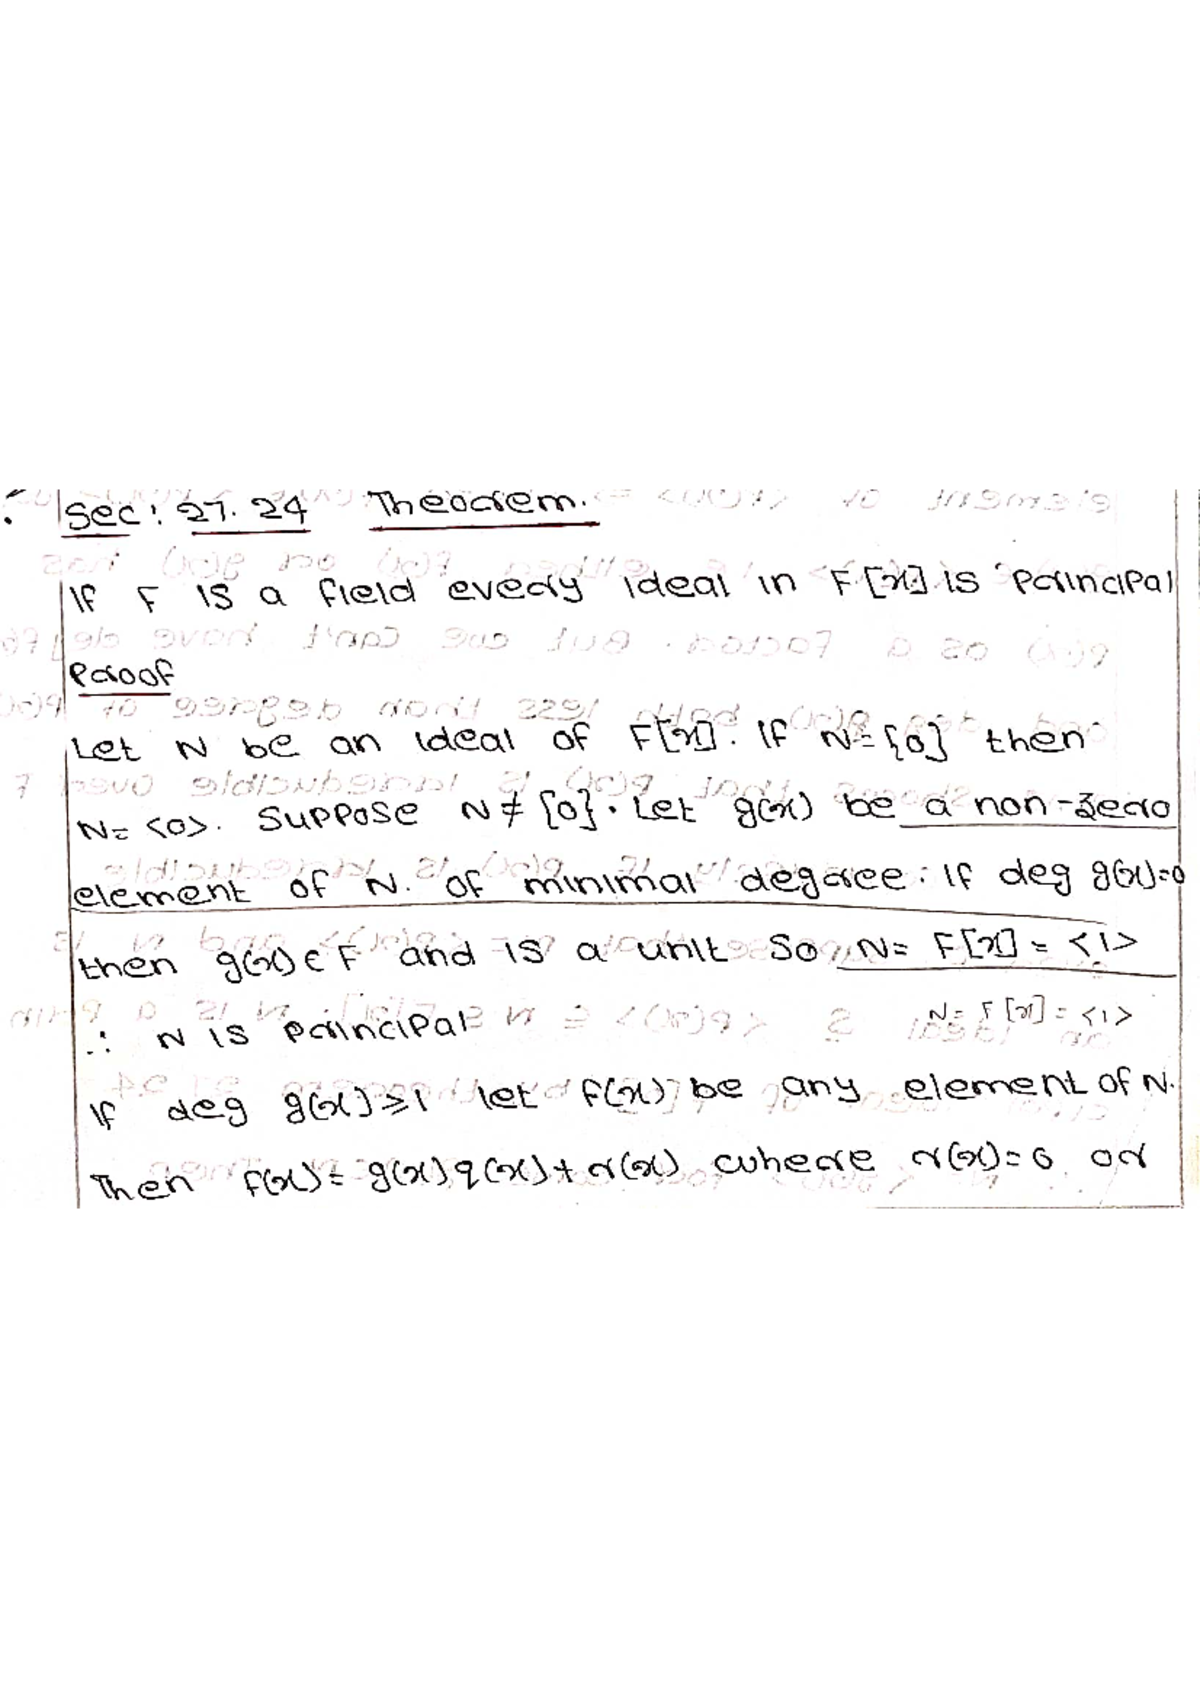 Sec: 27.24 Theorem.
If F is a field every ideal in F[x] is principal
Proof
Let N be an ideal of F[x]. If N={0} then
N=<0>. Suppose N≠{0}. Let g(x) be a non-zero
element of N. of minimal degree. If deg g(x)=0
then g(x)∈F and is a unit So N= F[x] = <1>
∴ N is principal
N= F[x] = <1>
If deg g(x)≥1 let f(x) be any element of N.
Then f(x)= g(x)q(x)+r(x) where r(x)=0 or